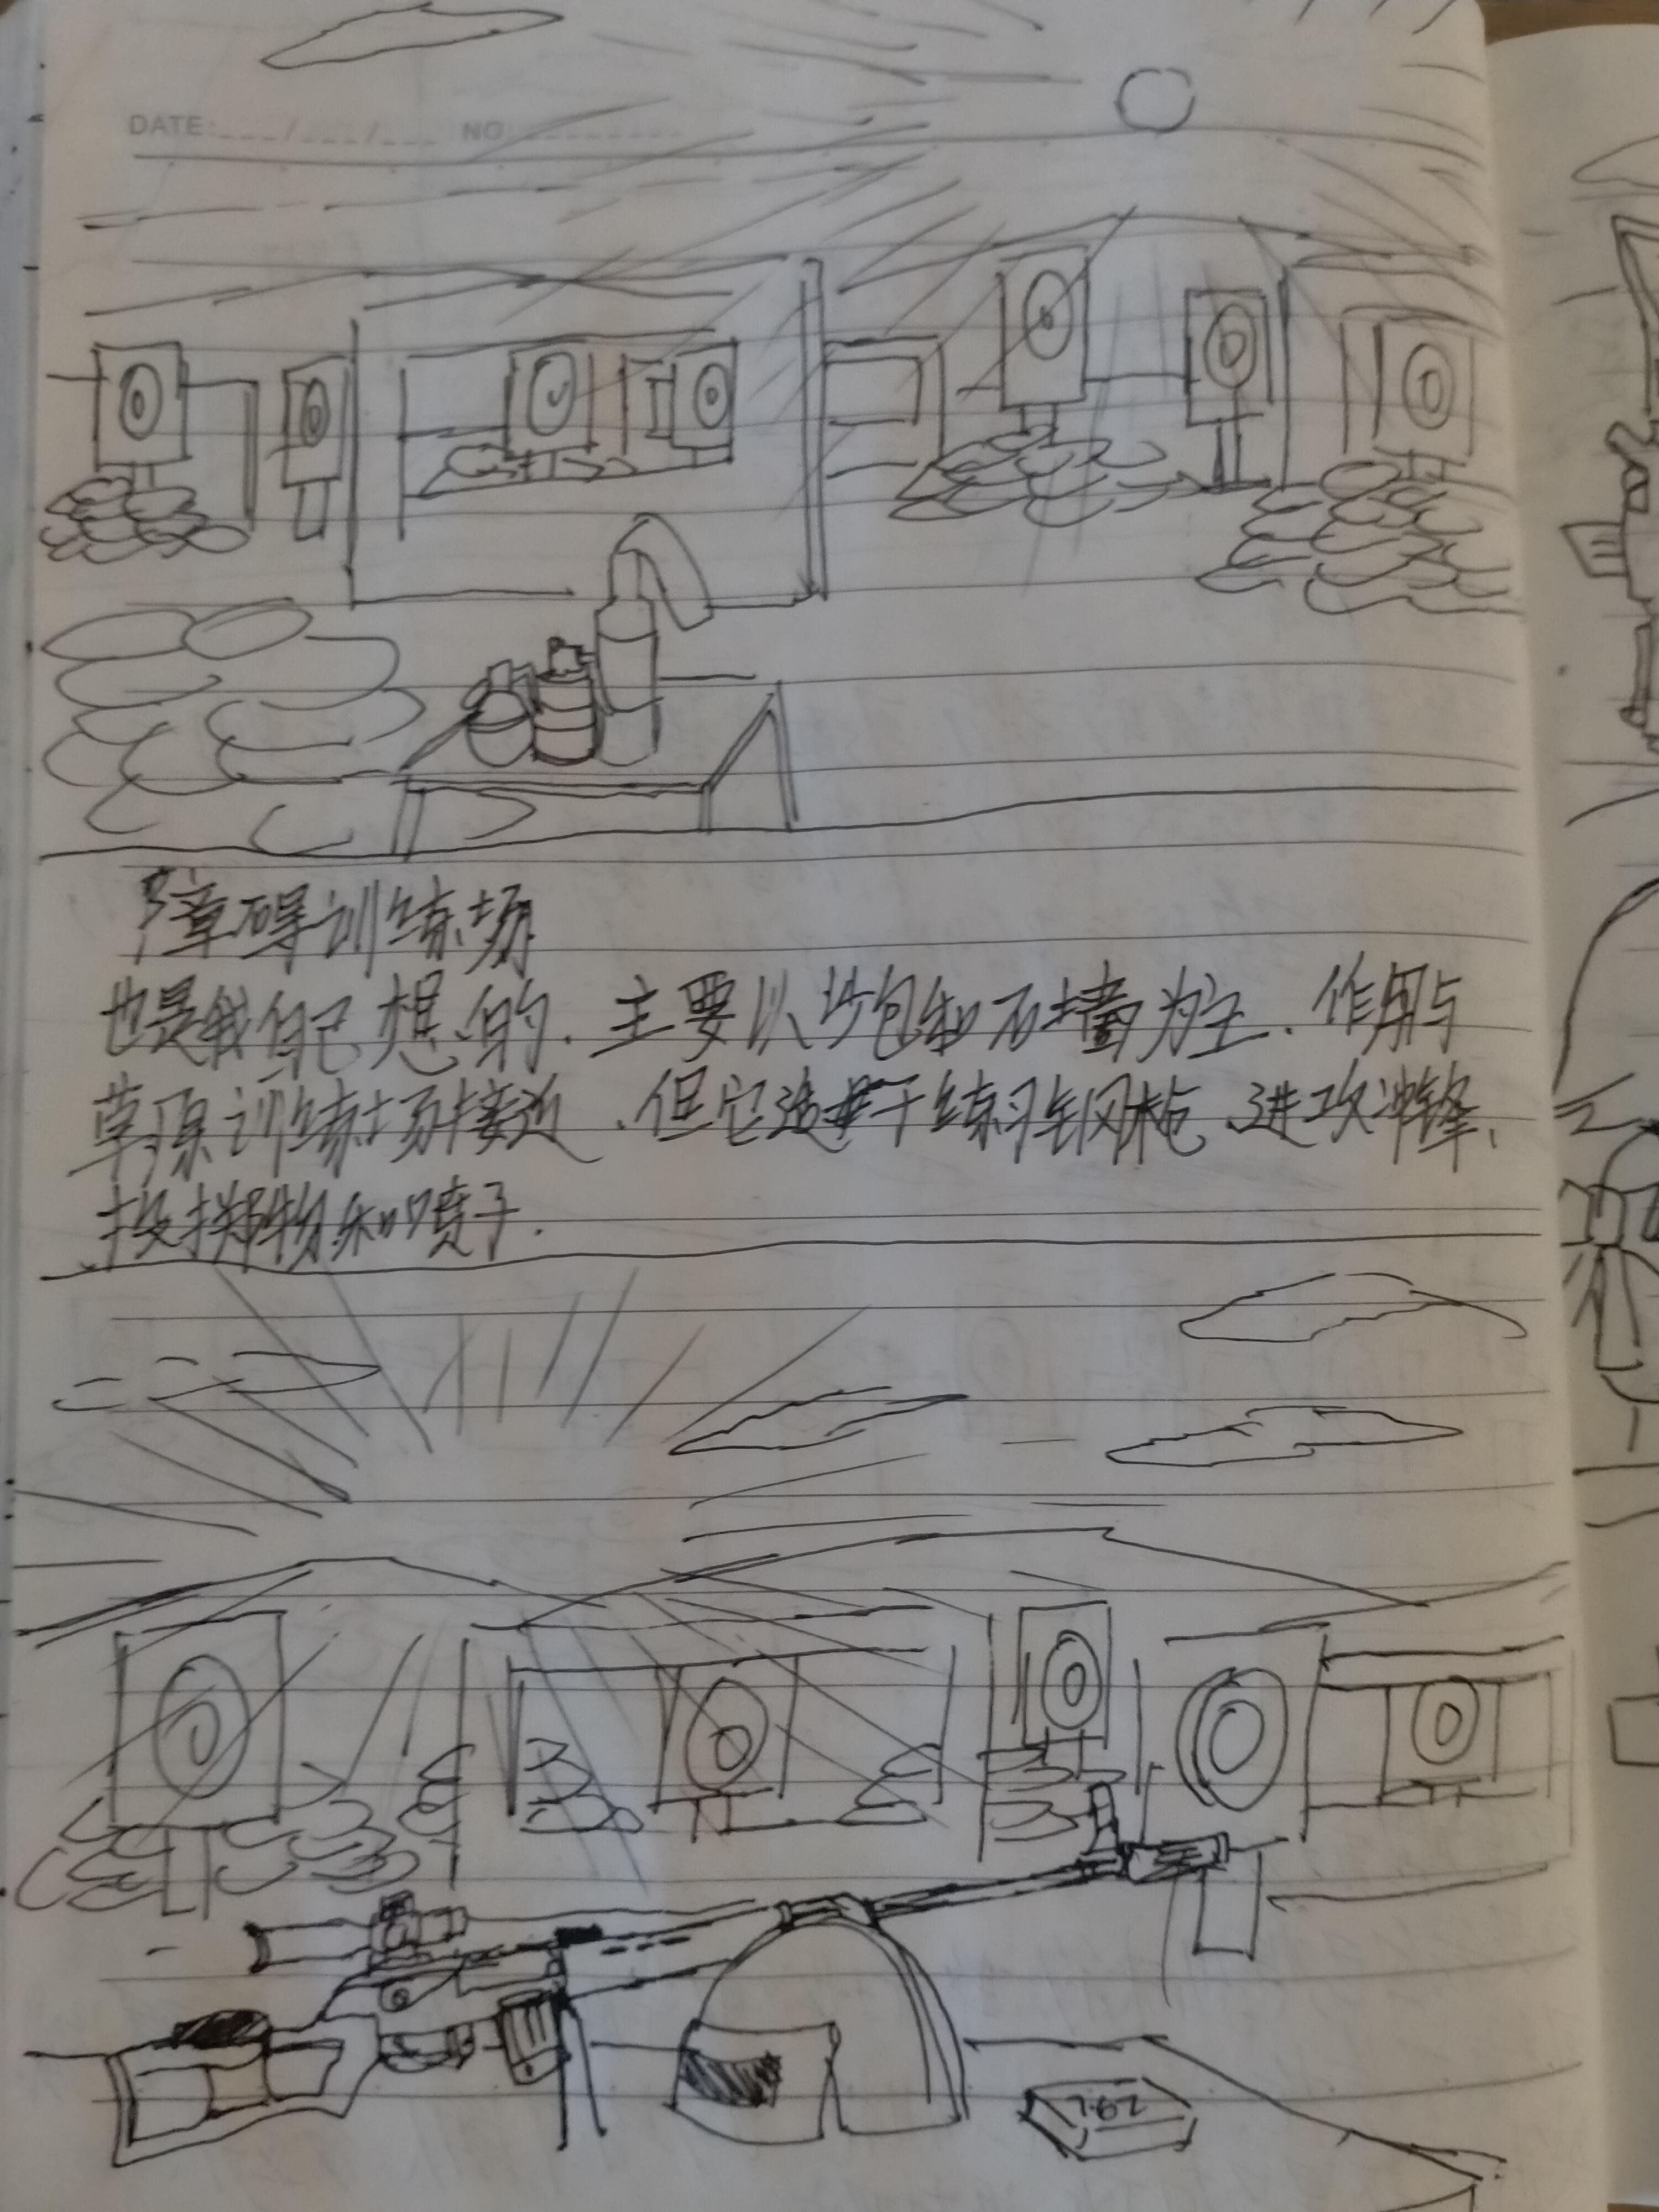 DATE:___/___/___ NO:
障碍训练场
也是我自己想的.主要以沙包和石墙为主.作用与
草原训练场接近.但它适于练习车冈枪、进攻冲锋、
投掷物和喷子.
7.62